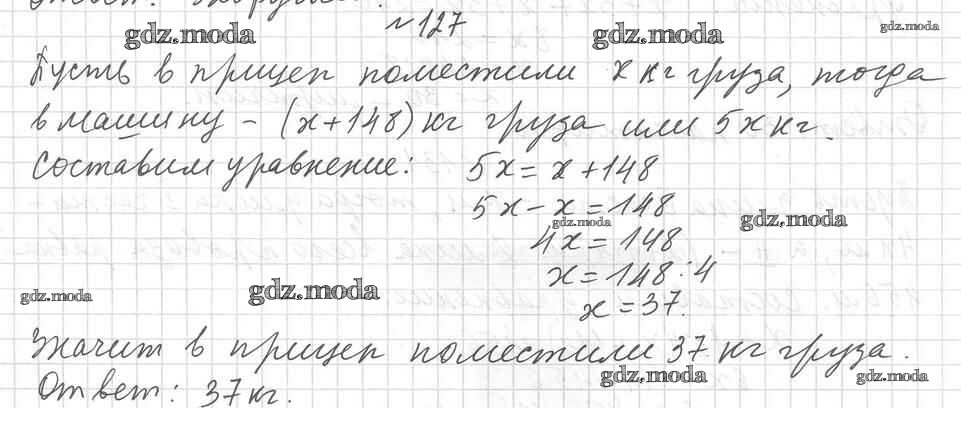 №127
gdz.moda gdz.moda gdz.moda
Пусть в прицеп поместили х кг груза, тогда
в машину – (х+148) кг груза или 5х кг.
Составим уравнение: 5х = х + 148
5х – х = 148
gdz.moda gdz.moda
4х = 148
х = 148 : 4
gdz.moda gdz.moda
х = 37.
Значит в прицеп поместили 37 кг груза.
gdz.moda gdz.moda
Ответ: 37 кг.